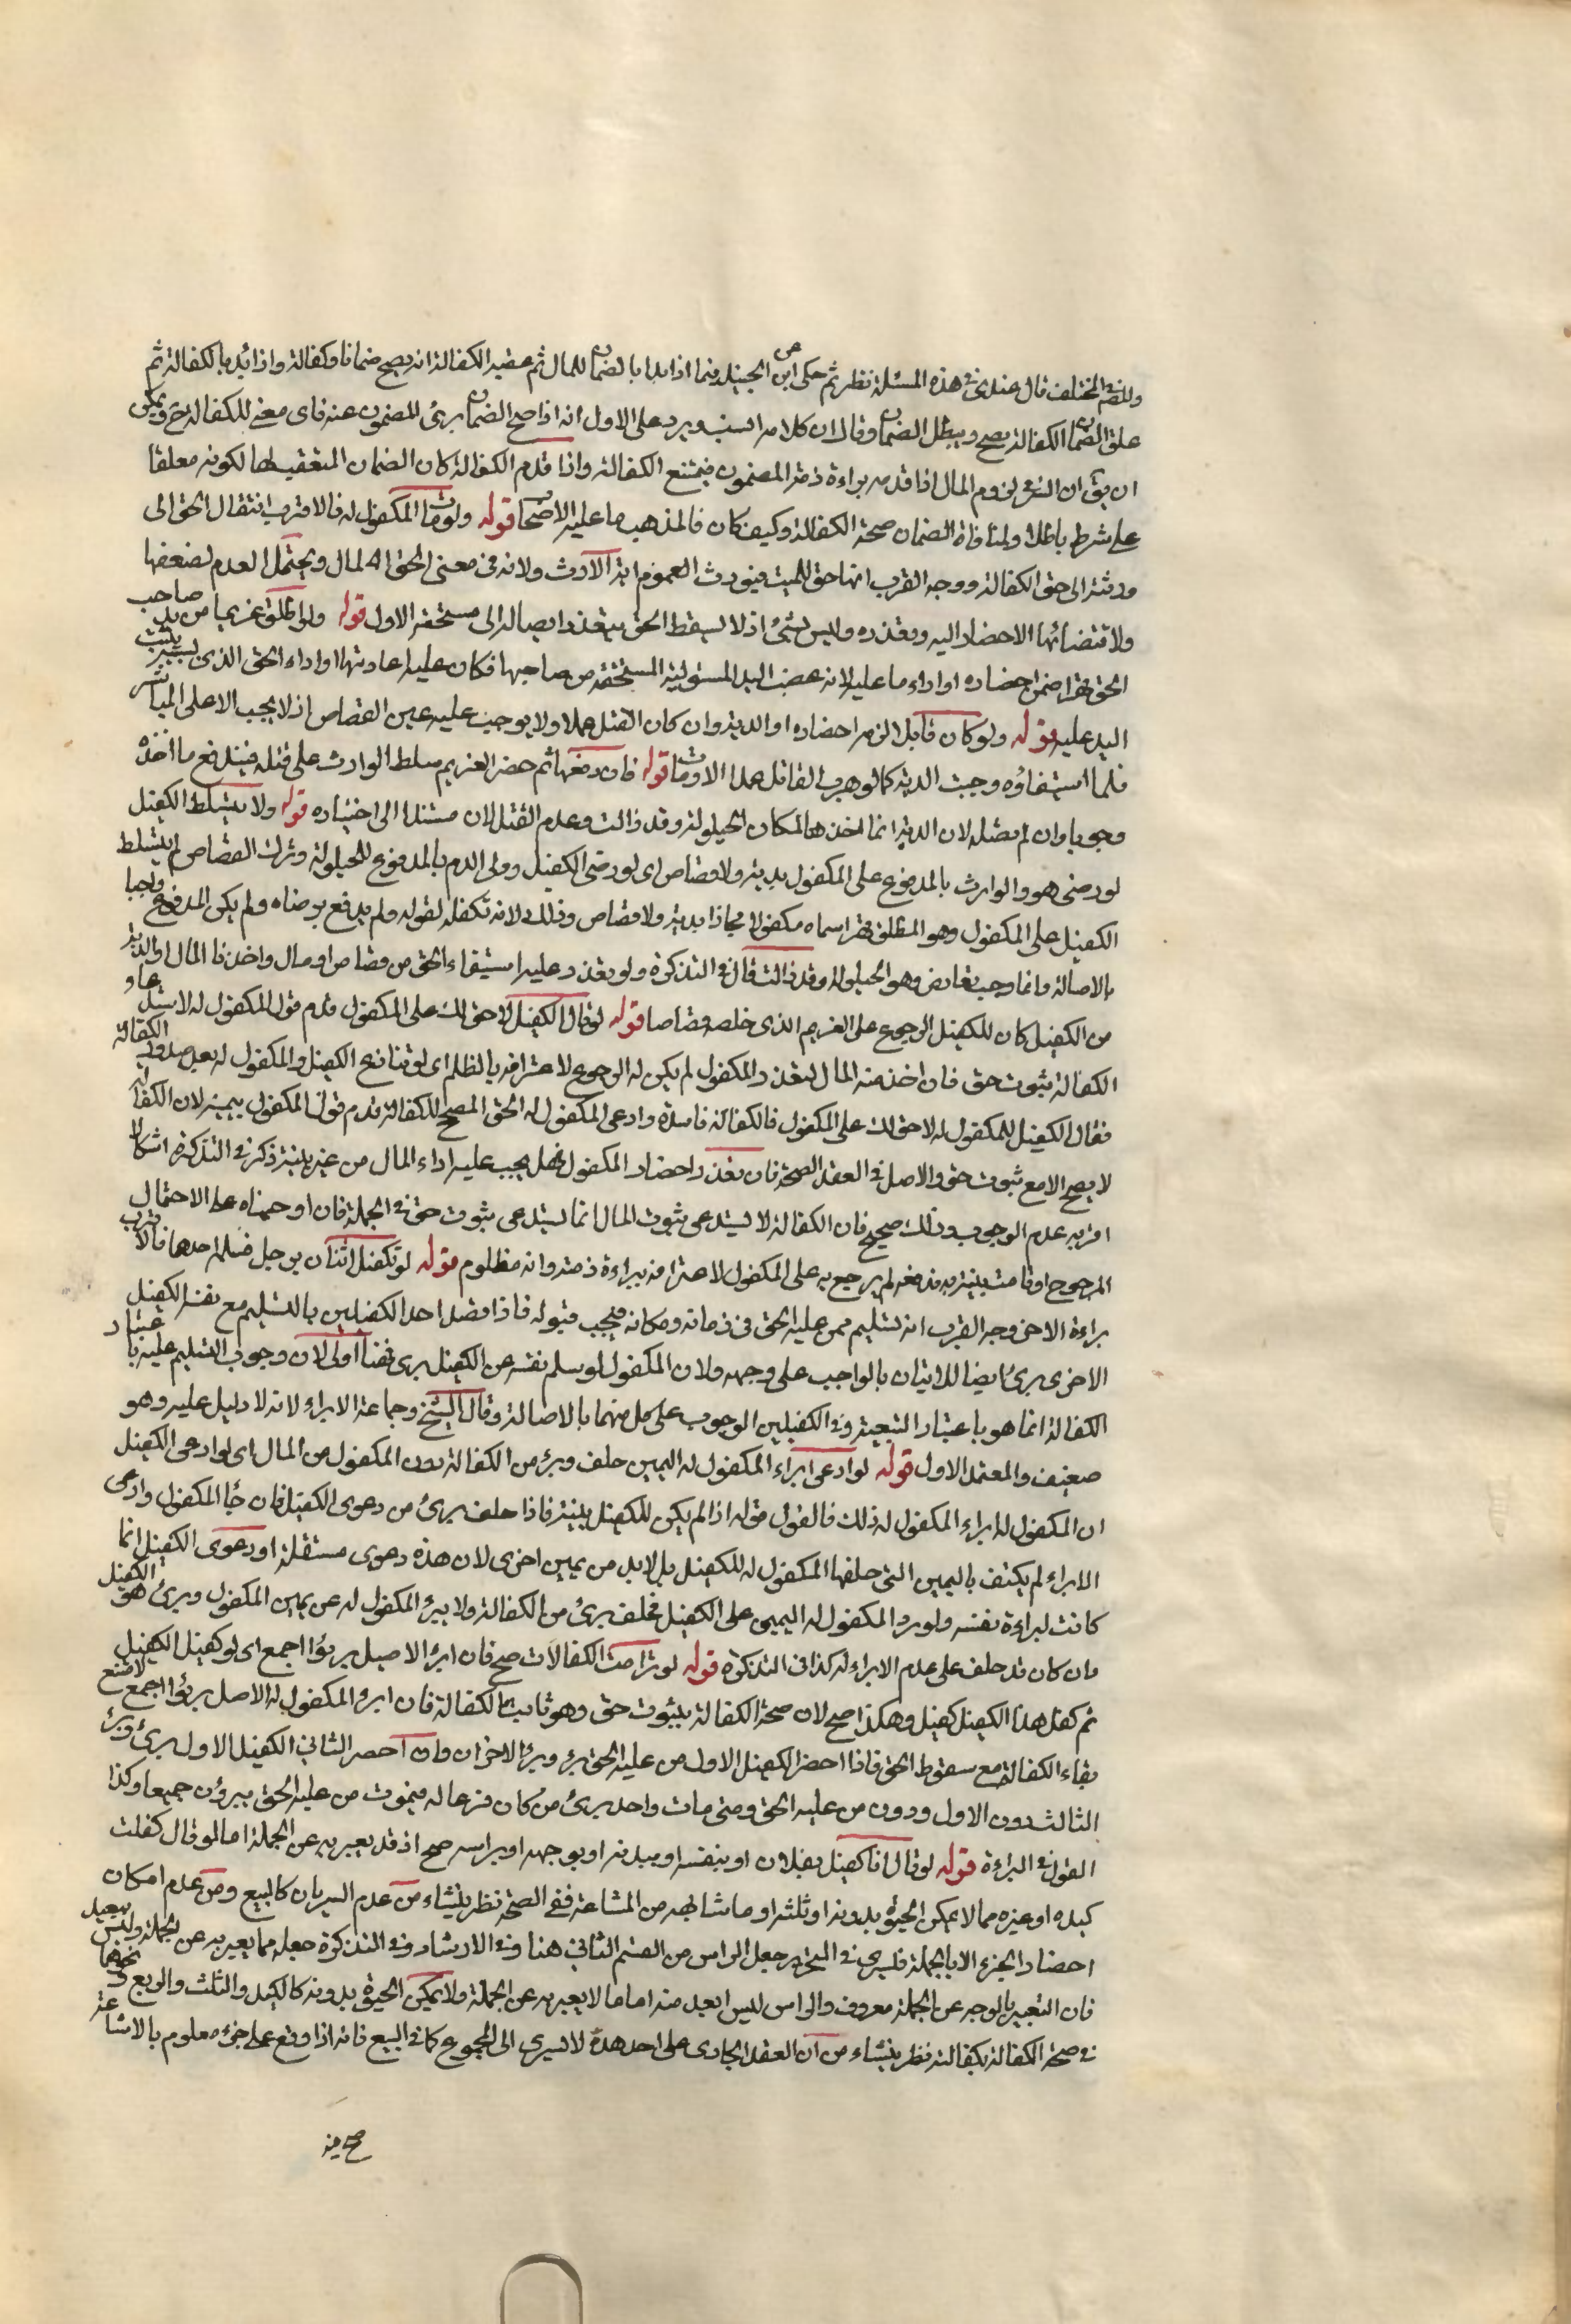 وللمصنف في المختلف قال عندي في هذه المسئلة نظر ثم حكى عن ابن الجنيد فيما اذا بدا بالضمان للمال ثم عقبه الكفالة انه يصح ضمانا وكفالة واذا بدا بالكفالة ثم
علق الضمان الكفالة يصح ويبطل الضمان وقال ان كلامه انسب ويرد على الاول انه اذا صح الضمان برئ المضمون عنه فاى معنى للكفالة ح ويمكن
ان يق ان الشرعى لزوم المال اذا قدمه براءة ذمة المضمون فيمتنع الكفالة واذا قدم الكفالة كان الضمان المتعقب لها لكونه معلقا
على شرط باطلا ولمنافاة الضمان صحة الكفالة وكيف كان فالمذهب ما عليه الاصحاب قوله ولو مات المكفول له فالاقرب انتقال الحق الى
ورثته الى حق الكفالة ووجه القرب انها حق للميت فيورث لعموم اية الارث ولانه في معنى الحق المالى ويحتمل العدم لضعفها
ولاقتضائها الاحضار اليه وبعذره وليس بشئ اذ لا يسقط الحق بتعذر ايصاله الى مستحقه الاول قوله ولو اطلق غريما من يد صاحب
الحق قهرا ضمن احضاره او اداء ما عليه لانه غصب اليد المستولية المستحقة من صاحبها فكان عليه اعادتها او اداء الحق الذى بسببه تثبت
اليد عليه قوله ولو كان قاتلا لزمه احضاره او الدية وان كان القتل عمدا ولا يوجب عليه عين القصاص اذ لا يجب الا على المباشر
فلما استيفاؤه وجبت الدية كما لو هرب القاتل عمدا او مات قوله فان دفعها ثم حضر الغريم سلط الوارث على قتله فيدفع ما اخذه
وجوبا وان لم يقتله لان الدية انما اخذها لمكان الحيلولة وقد زالت وعدم القتل الان مستند الى اختياره قوله ولا يتسلط الكفيل
لو رضى هو والوارث بالمدفوع على المكفول بدية ولا قصاص اى لو رضى الكفيل وولى الدم بالمدفوع للحيلولة وترك القصاص لم يتسلط
الكفيل على المكفول وهو المطلق قهرا سماه مكفولا مجازا بدية ولا قصاص وذلك لانه تكفله لقوله ولم يدفع برضاه ولم يكن المدفوع واجبا
بالاصالة وانما وجب بعارض وهو الحيلولة وقد زالت قال في التذكرة ولو تعذر عليه استيفاء الحق من قصاص او مال واخذنا المال او الدية
من الكفيل كان للكفيل الرجوع على الغريم الذى خلصه قصاصا قوله لو قال الكفيل لا حق لك على المكفول قدم قول المكفول له لاستدعاء
الكفالة ثبوت حق فان اخذ منه المال لتعذر المكفول لم يكن له الرجوع لاعترافه بالظلم اى لو تنازع الكفيل والمكفول له بعد صدور الكفالة
فقال الكفيل للمكفول له لا حق لك على المكفول فالكفالة فاسدة وادعى المكفول له الحق المصحح للكفالة قدم قول المكفول بيمينه لان الكفالة
لا يصح الا مع ثبوت حق والاصل في العقد الصحة فان تعذر احضار المكفول فهل يجب عليه اداء المال من غير بينة ذكر في التذكرة اشكالا
اقربه عدم الوجوب وذلك صحيح فان الكفالة لا يستدعى ثبوت المال انما يستدعى ثبوت حق في الجملة فان اوجبناه على الاحتمال
المرجوح او قامت بينة به فدفعه لم يرجع به على المكفول لاعترافه ببراءة ذمته وانه مظلوم قوله لو تكفل اثنان برجل فسلم احدهما فالاقرب
براءة الاخر وجه القرب انه تسليم ممن عليه الحق في زمانه ومكانه فيجب قبوله فاذا قصد احد الكفيلين بالتسليم مع نفسه الكفيل
الاخرى برئ ايضا للاتيان بالواجب على وجهه ولان المكفول لو سلم نفسه عن الكفيل برئ فهنا اولى لان وجوب التسليم عليه باعتبار
الكفالة انما هو باعتبار التبعية وفى الكفيلين الوجوب على كل منهما بالاصالة وقال الشيخ وجماعة الابراء لانه لا دليل عليه وهو
ضعيف والمعتمد الاول قوله لو ادعى ابراء المكفول له اليمين حلف وبرئ من الكفالة دون المكفول من المال اى لو ادعى الكفيل
ان المكفول له ابراء المكفول له ذلك فالقول قوله اذا لم يكن للكفيل بينة فاذا حلف برئ من دعوى الكفيل فان جاء المكفول وادعى
الابراء لم يكتف باليمين التى حلفها المكفول له للكفيل بل لابد من يمين اخرى لان هذه دعوى مستقلة او دعوى الكفيل انما
كانت لبراءة نفسه ولو رد المكفول له اليمين على الكفيل فحلف برئ من الكفالة ولا يبرئ المكفول له عن يمين المكفول وبرئ هو الكفيل
وان كان قد حلف على عدم الابراء له كذا في التذكرة قوله لو ترامت الكفالات صح فان ابرئ الاصيل برئوا اجمع اى لو كفيل الكفيل
ثم كفل هذا الكفيل كفيل وهكذا صح لان صحة الكفالة بثبوت حق وهو ثابت بالكفالة فان ابرئ المكفول له الاصل برئوا اجمع لامتناع
بقاء الكفالة مع سقوط الحق فاذا احضر الكفيل الاول من عليه الحق برئ وبرئ الاخران وان احضر الثانى الكفيل الاول برئ وبرئ
الثالث دون الاول ودون من عليه الحق ومتى مات واحد برئ من كان فرعا له فيموت من عليه الحق يبرؤن جميعا وكذا
القول في البراءة قوله لو قال انا كفيل بفلان او بنفسه او ببدنه او بوجهه او براسه صح اذ قد يعبر به عن الجملة اما لو قال كفلت
كبده او غيره مما لا يمكن الحيوة بدونه او ثلثه او ما شابهه من المشاعة ففى الصحة نظر ينشاء من عدم السريان كالبيع ومن عدم امكان
احضار الجزء الا بالجملة فيسرى في التحرير جعل الراس من القسم الثانى هنا وفى الارشاد وفى التذكرة جعله مما يعبر به عن الجملة وليس ببعيد
فان التعبير بالوجه عن الجملة معروف والراس ليس ابعد منه اما ما لا يعبر به عن الجملة ولا يمكن الحيوة بدونه كالكبد والثلث والربع ونحوهما
في صحة الكفالة بكفالته نظر ينشاء من ان العقد الجارى على احد هذه لا يسرى الى المجموع كما في البيع فانه اذا وقع على جزء معلوم بالاشاعة